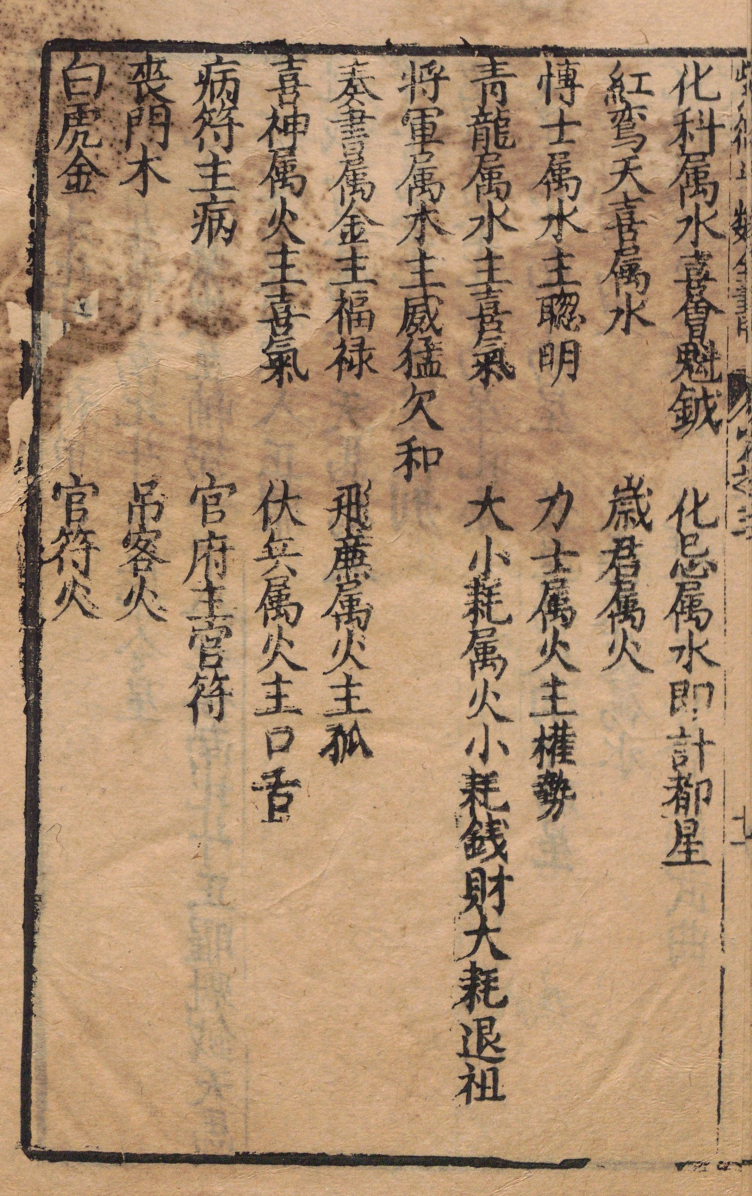 化科属水喜會魁鉞　化忌属水即計都星
紅鸞天喜属水　歲君属火
博士属水主聰明　力士属火主權勢
青龍属水主喜氣　大小耗属火小耗錢財大耗退祖
将軍属木主威猛欠和
奏書属金主福禄　飛廉属火主孤
喜神属火主喜氣　伏兵属火主口舌
病符主病　官府主官符
喪門木　吊客火
白虎金　官符火